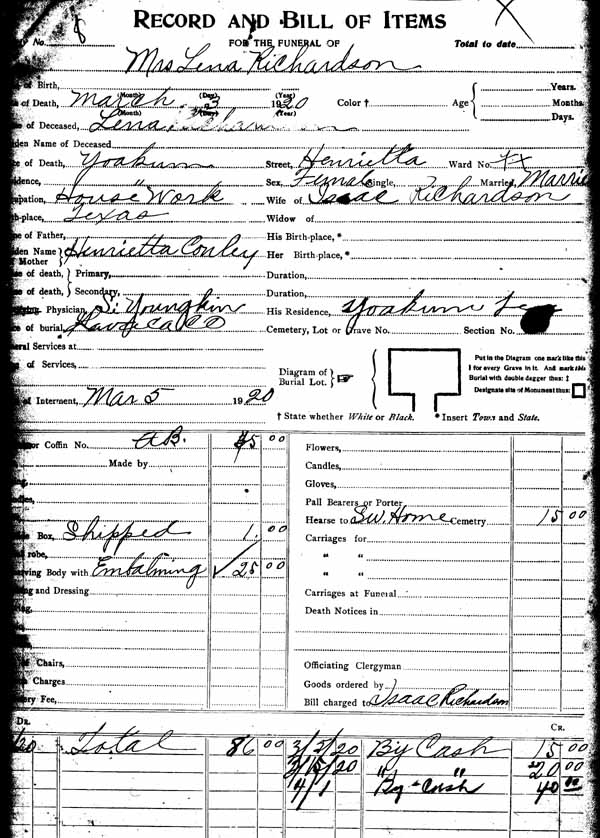 RECORD AND BILL OF ITEMS
No. 8 FOR THE FUNERAL OF Total to date
Mrs Lena Richardson
of Birth, (Month) (Day) (Year) Years.
of Death, March 3 1920 Color † Age Months.
(Month) (Day) (Year) Days.
of Deceased, Lena
den Name of Deceased
of Death, Yoakum Street, Henrietta Ward No. xx
idence, " Sex, Female Single, Married, Marrie
upation, House Work Wife of Isaac Richardson
th-place, Texas Widow of
e of Father, His Birth-place, *
den Name of Mother Henrietta Conley Her Birth-place, *
e of death, Primary, Duration,
e of death, Secondary, Duration,
Physician, Youngkin His Residence, Yoakum
e of burial, Cemetery, Lot or Grave No. Section No.
eral Services at
of Services,
Diagram of Burial Lot. ☞
Put in the Diagram one mark like this
I for every Grave in it. And mark this
Burial with double dagger thus: ‡
Designate site of Monument thus: □
of Interment, Mar 5 1920
† State whether White or Black. * Insert Town and State.
or Coffin No. 45 00 Flowers,
Made by Candles,
Gloves,
Pall Bearers or Porter
Hearse to Sw. Home Cemetry 15 00
Box, Shipped 1. 00 Carriages for
robe, " "
rving Body with Embalming ✓ 25 00 " "
ng and Dressing Carriages at Funeral
Death Notices in
Chairs, Officiating Clergyman
Charges Goods ordered by
ery Fee, Bill charged to Isaac Richardson
DR. CR.
20 Total 86 00 3/5/20 By Cash 15 00
3/15/20 " " 20 00
4/1 By Cash 40 00